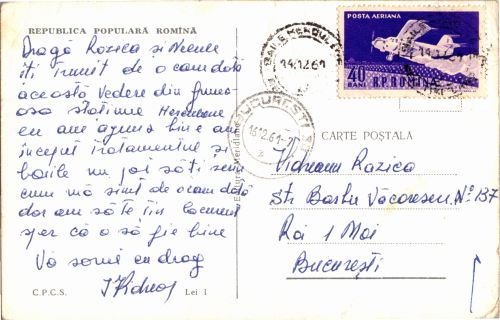 REPUBLICA POPULARĂ ROMÎNĂ
Dragă Rozica si Nicule
îți trimit de o cam dată
această Vedere din frumo-
asa statiune Herculane
eu am ajuns bine am
început tratamentul și
baile nu pot să ți scriu
cum mă simt de o cam dată
dor am să te țin la curent
sper că o să fie bine
Vă sorut cu drag
C.P.C.S.
Lei 1
BAILE HERCULANE
14.12.61
POSTA AERIANA
40 BANI
R.P.ROMINA
BUCUREȘTI
16.12.61
CARTE POȘTALA
Vidreanu Rozica
Str Barbu Văcărescu N° 137
Rai 1 Mai
București